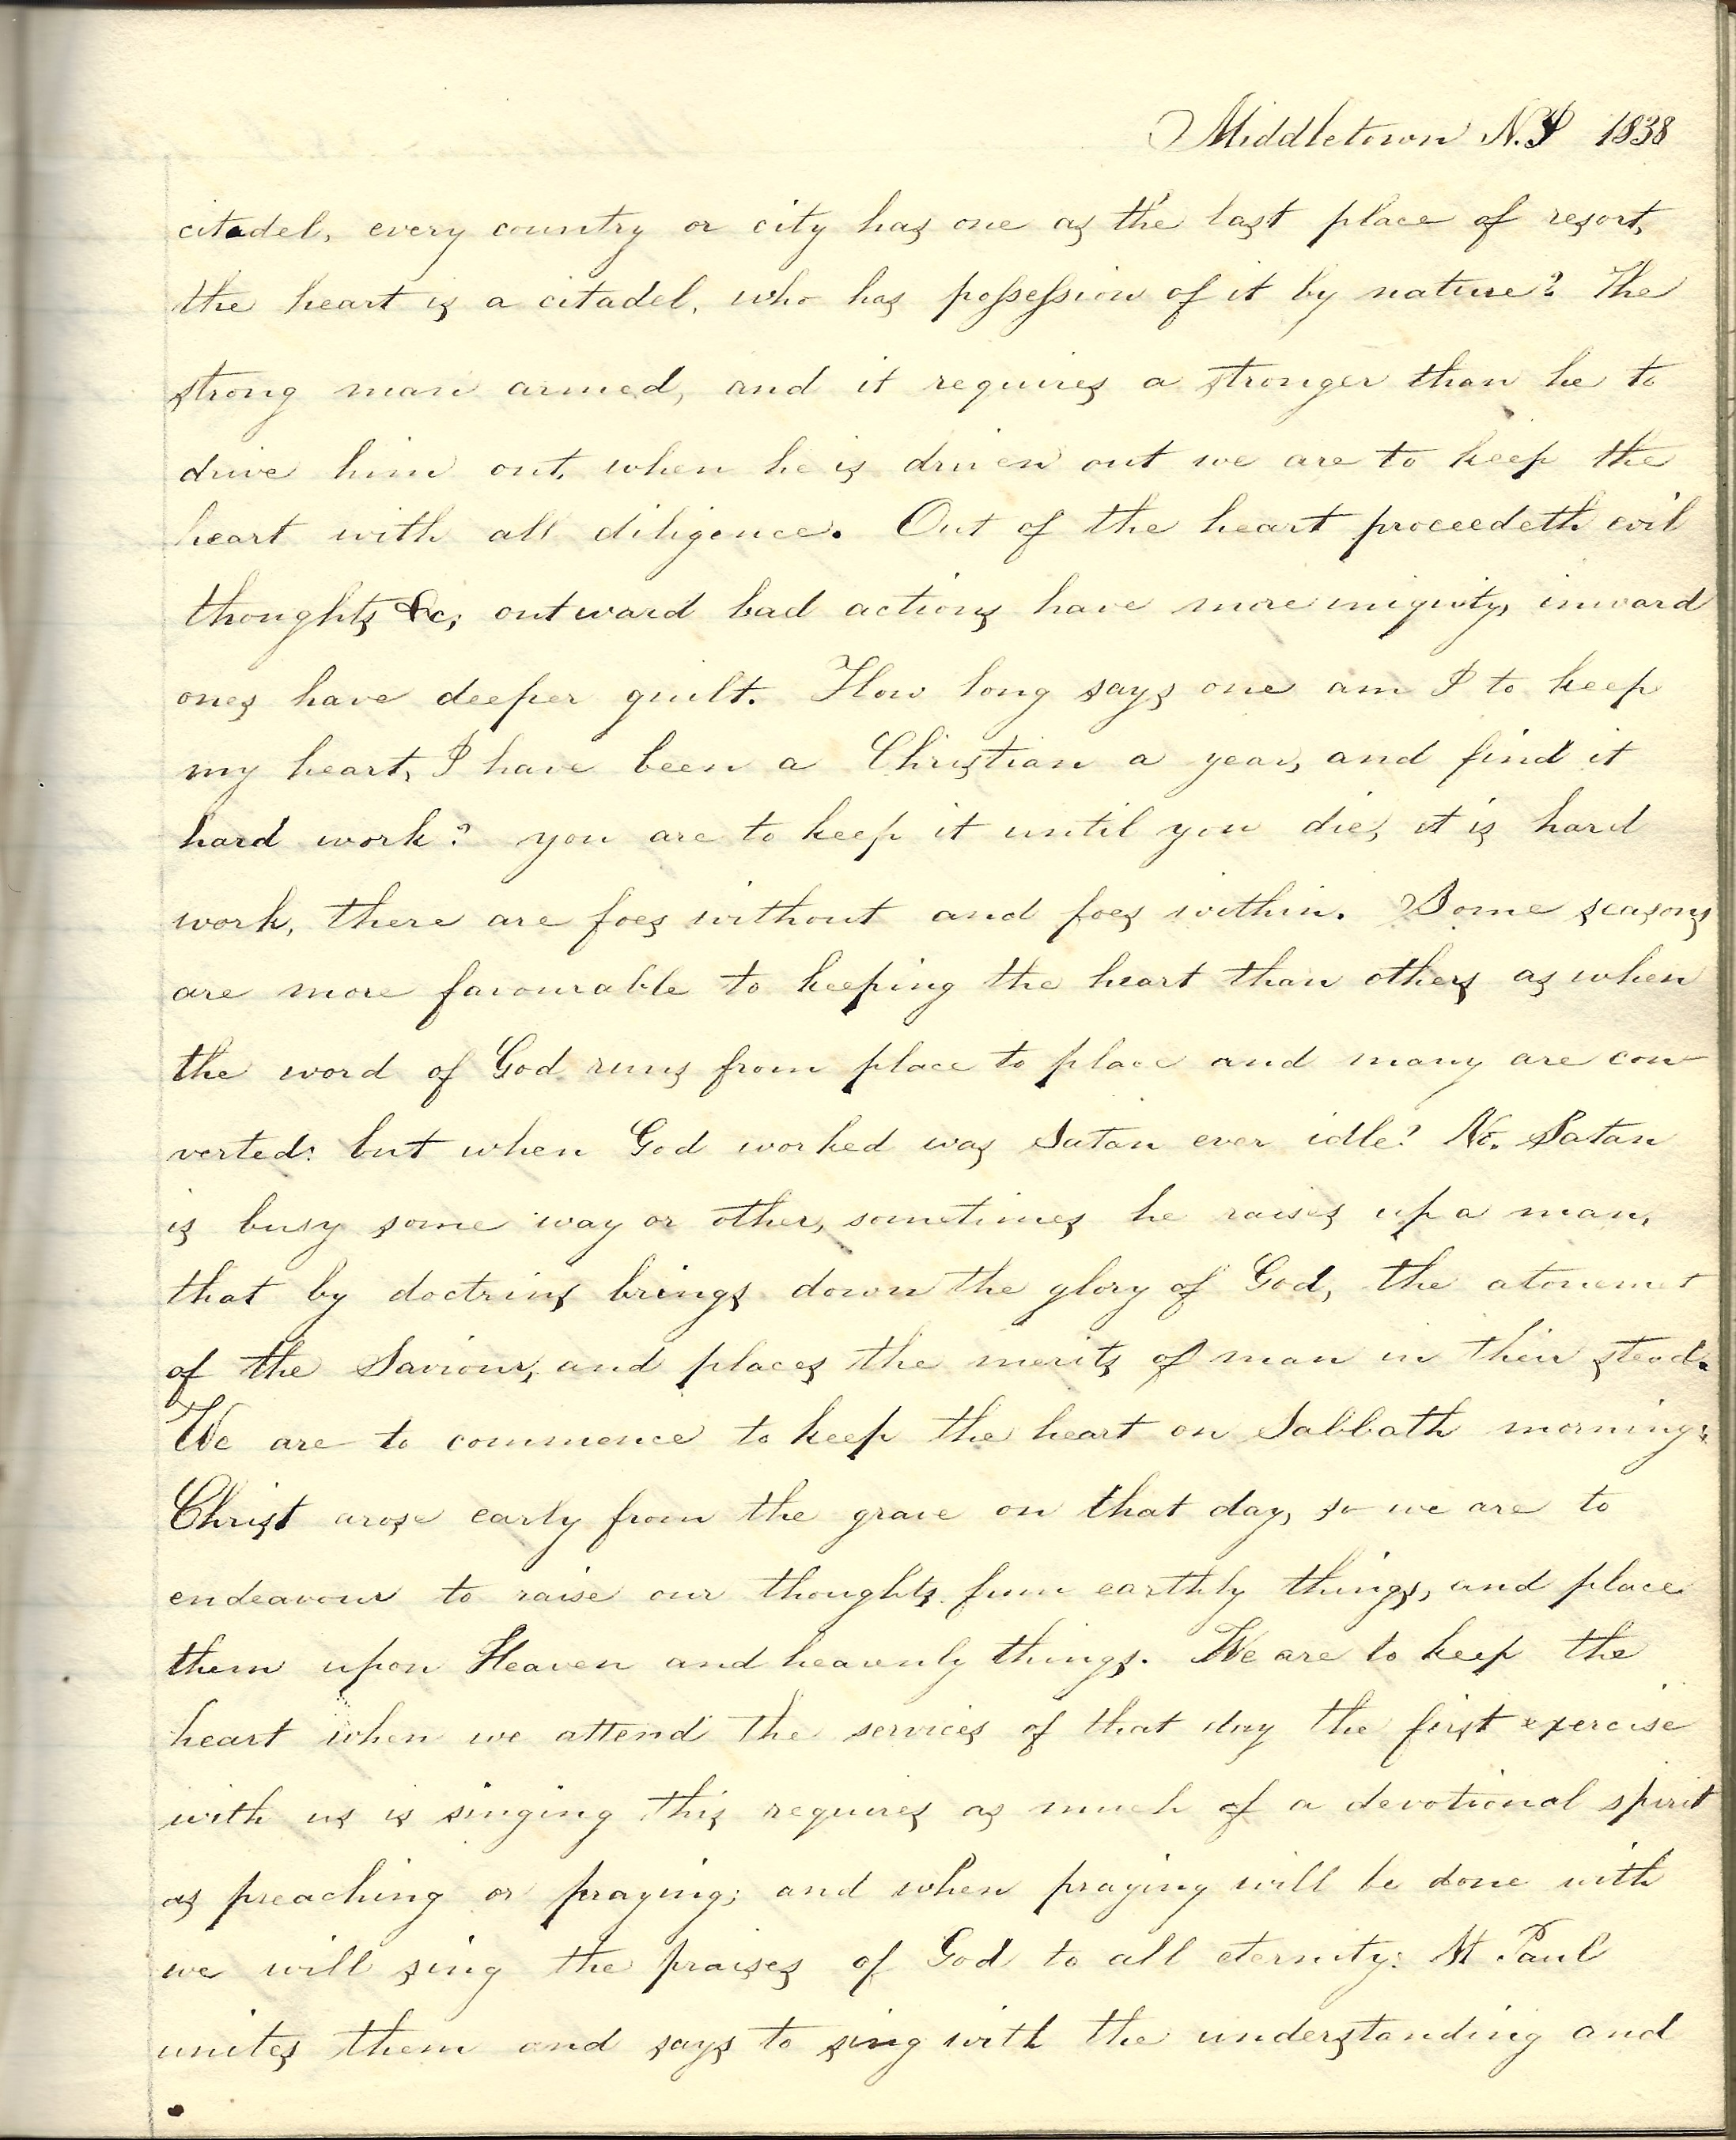 Middletown N.J 1838
citadel, every country or city has one as the last place of resort,
the heart is a citadel, who has possession of it by nature? The
strong man armed, and it requires a stronger than he to
drive him out, when he is driven out we are to keep the
heart with all diligence. Out of the heart proceedeth evil
thoughts &c; outward bad actions have more iniquity, inward
ones have deeper guilt. How long says one am I to keep
my heart, I have been a Christian a year, and find it
hard work? you are to keep it until you die, it is hard
work, there are foes without and foes within. Some seasons
are more favourable to keeping the heart than others as when
the word of God runs from place to place and many are con-
verted: but when God worked was Satan ever idle? No. Satan
is busy some way or other, sometimes he raises up a man,
that by doctrins brings down the glory of God, the atonemet
of the Saviour, and places the merits of man in their stead.
We are to commence to keep the heart on Sabbath morning;
Christ arose early from the grave on that day, so we are to
endeavour to raise our thoughts from earthly things, and place
them upon Heaven and heavenly things. We are to keep the
heart when we attend the services of that day the first exercise
with us is singing this requires as much of a devotional spirit
as preaching or praying; and when praying will be done with
we will sing the praises of God to all eternity: St Paul
unites them and says to sing with the understanding and